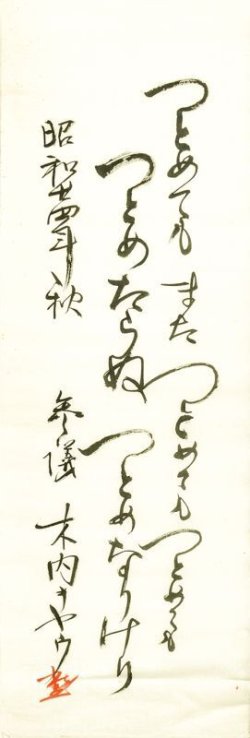 つとめてもまたつとめてもつとめても
つとめたらぬつとめなりけり
昭和廿四年秋 参議 木内キヤウ